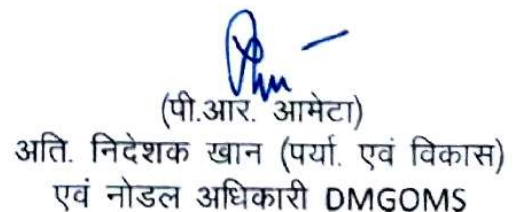 (पी.आर. आमेटा)
अति. निदेशक खान (पर्या. एवं विकास)
एवं नोडल अधिकारी DMGOMS